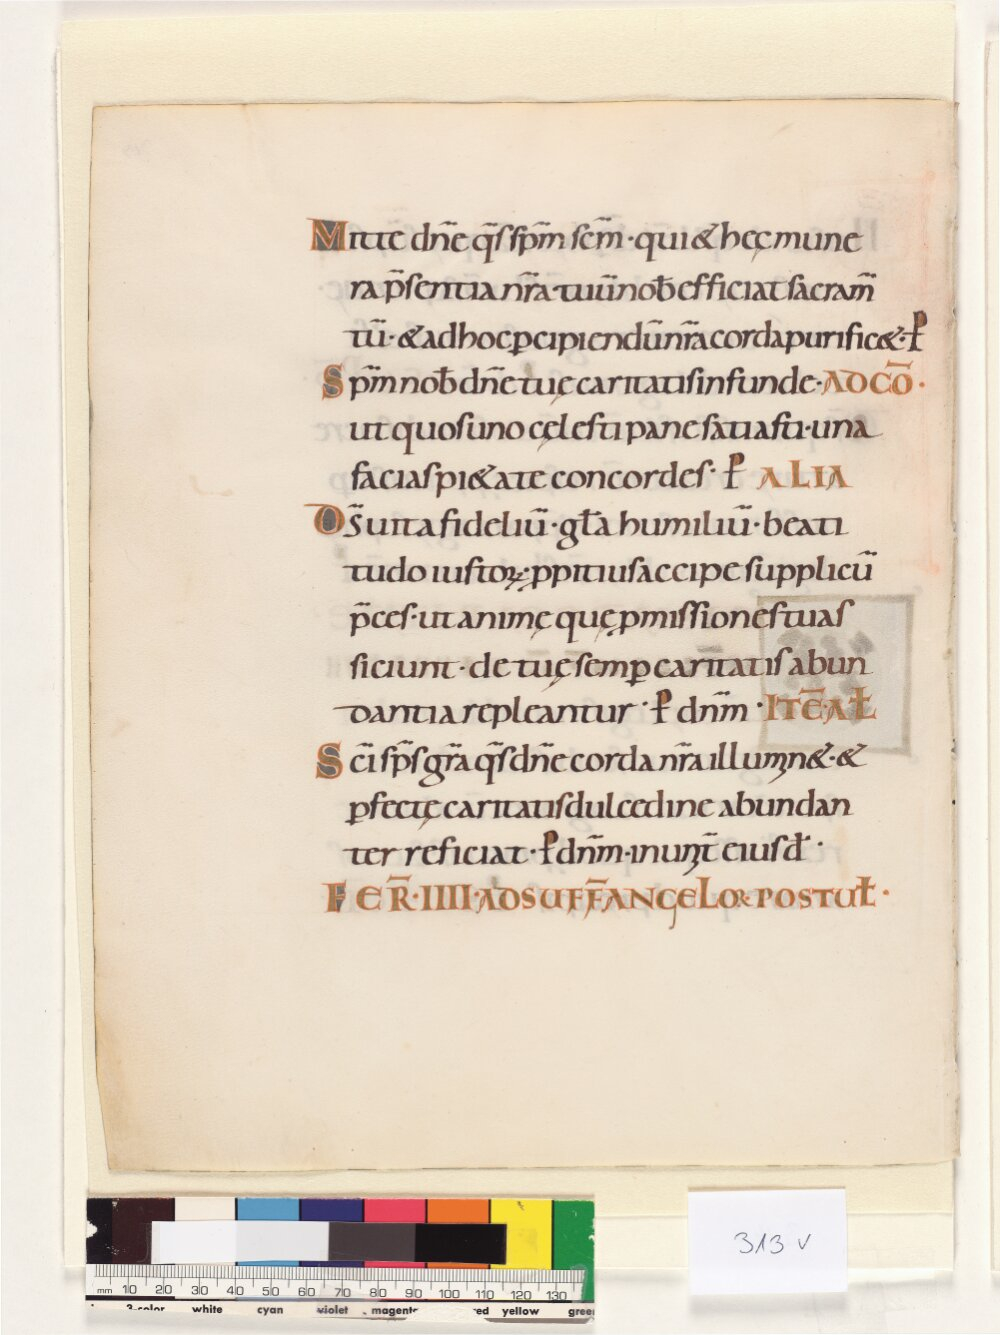 Mitte dñe q̃s sp̃m sc̃m · qui & hęc mune
ra p̃sentia nr̃a tuũ nob̄ efficiat sacram̃
tũ · & ad hoc p̱cipiendũ nr̃a corda purific& · P̱
Sp̃m nob̄ dñe tuę caritatis infunde · AD CŌ ·
ut quos uno cęlesti pane satiasti · una
facias pi&ate concordes · P̱ ALIA
D̄S uita fideliũ · gƚa humiliũ · beati
tudo iustoꝝ · ꝓpitius accipe supplicũ
p̃ces · ut animę quę ꝓmissiones tuas
siciunt · de tuę semꝑ caritatis abun
dantia repleantur · P̱ dnm̃ · ITĒ Aƚ
Sc̃i sp̃s gr̃a q̃s dñe corda nr̃a illumin& · &
ꝑfectę caritatis dulcedine abundan
ter reficiat · P̱ dnm̃ · in unit̃ eiusd̄ ·
FER̄ · IIII · AD SUFF̄ ANGELOꝜ POSTUƚ ·
313 v
mm 10 20 30 40 50 60 70 80 90 100 110 120 130
3-color white cyan violet magenta red yellow green